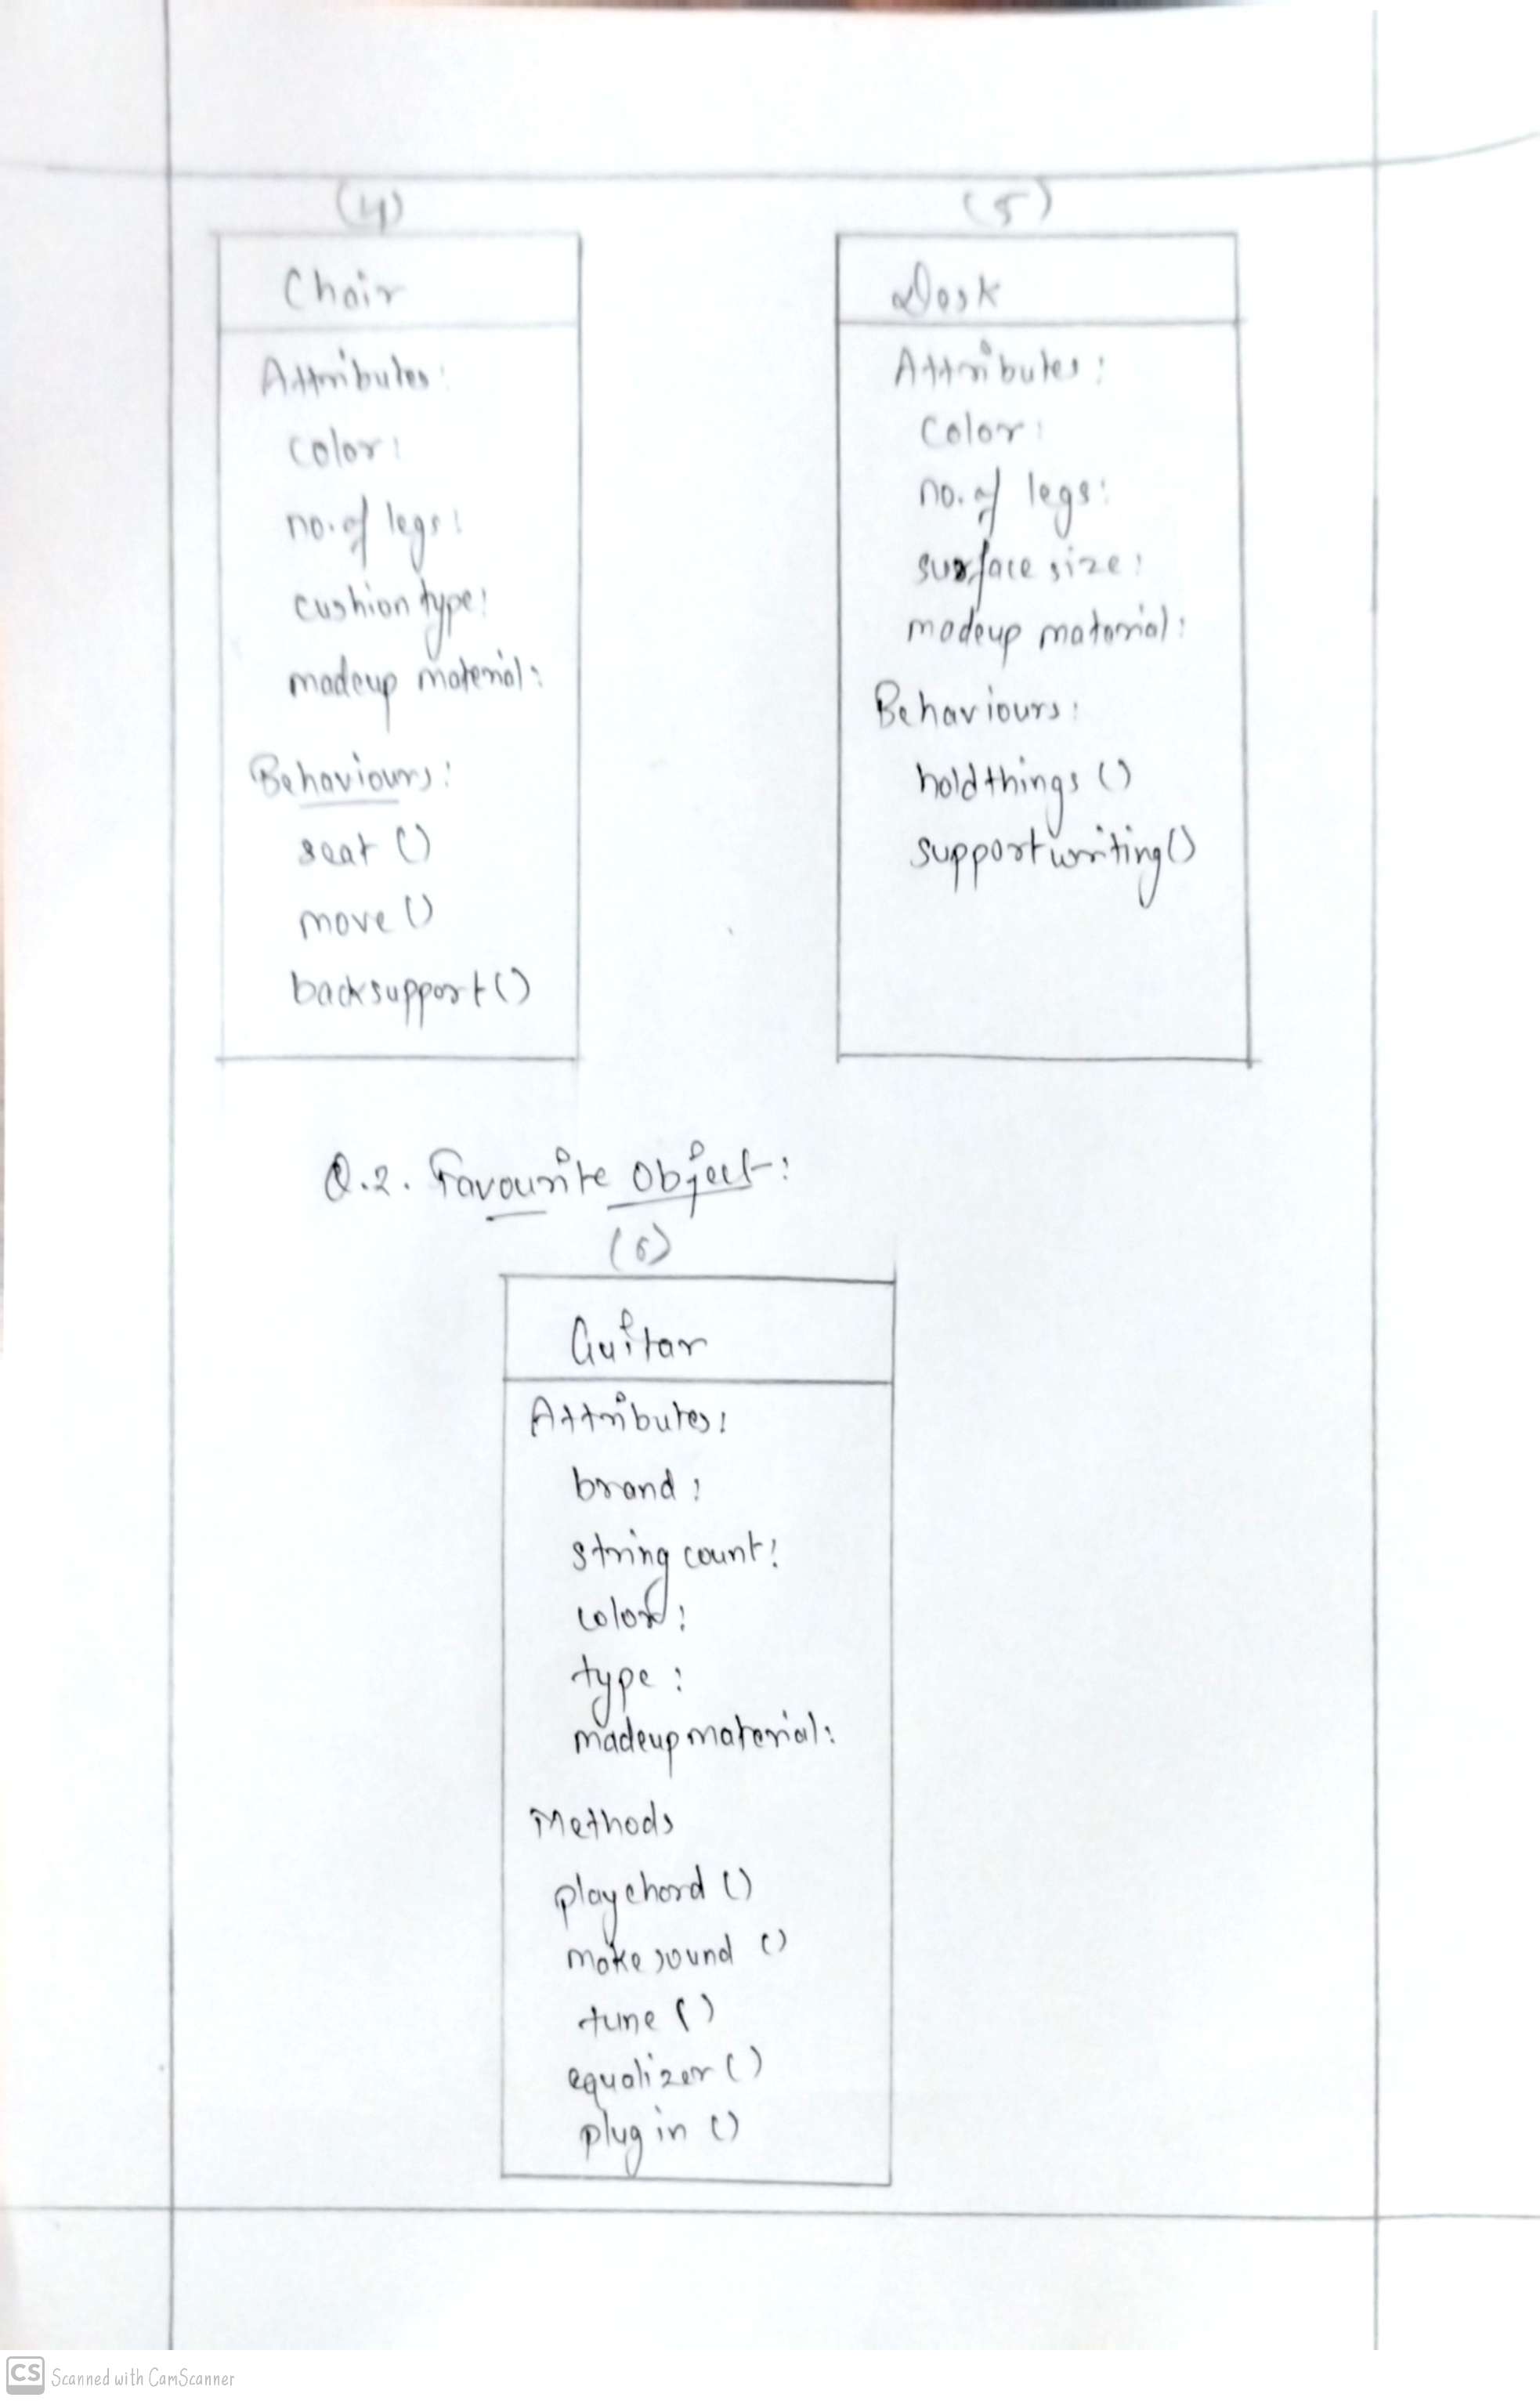 (4)
Chair
Attributes:
color:
no. of legs:
cushion type:
madeup material:
Behaviours:
seat ()
move ()
backsupport ()
(5)
Desk
Attributes:
Color:
no. of legs:
surface size:
madeup material:
Behaviours:
holdthings ()
supportwriting ()
Q.2. Favourite Object:
(6)
Guitar
Attributes:
brand:
string count:
color:
type:
madeup material:
Methods
playchord ()
make sound ()
tune ()
equalizer ()
plug in ()
CS Scanned with CamScanner